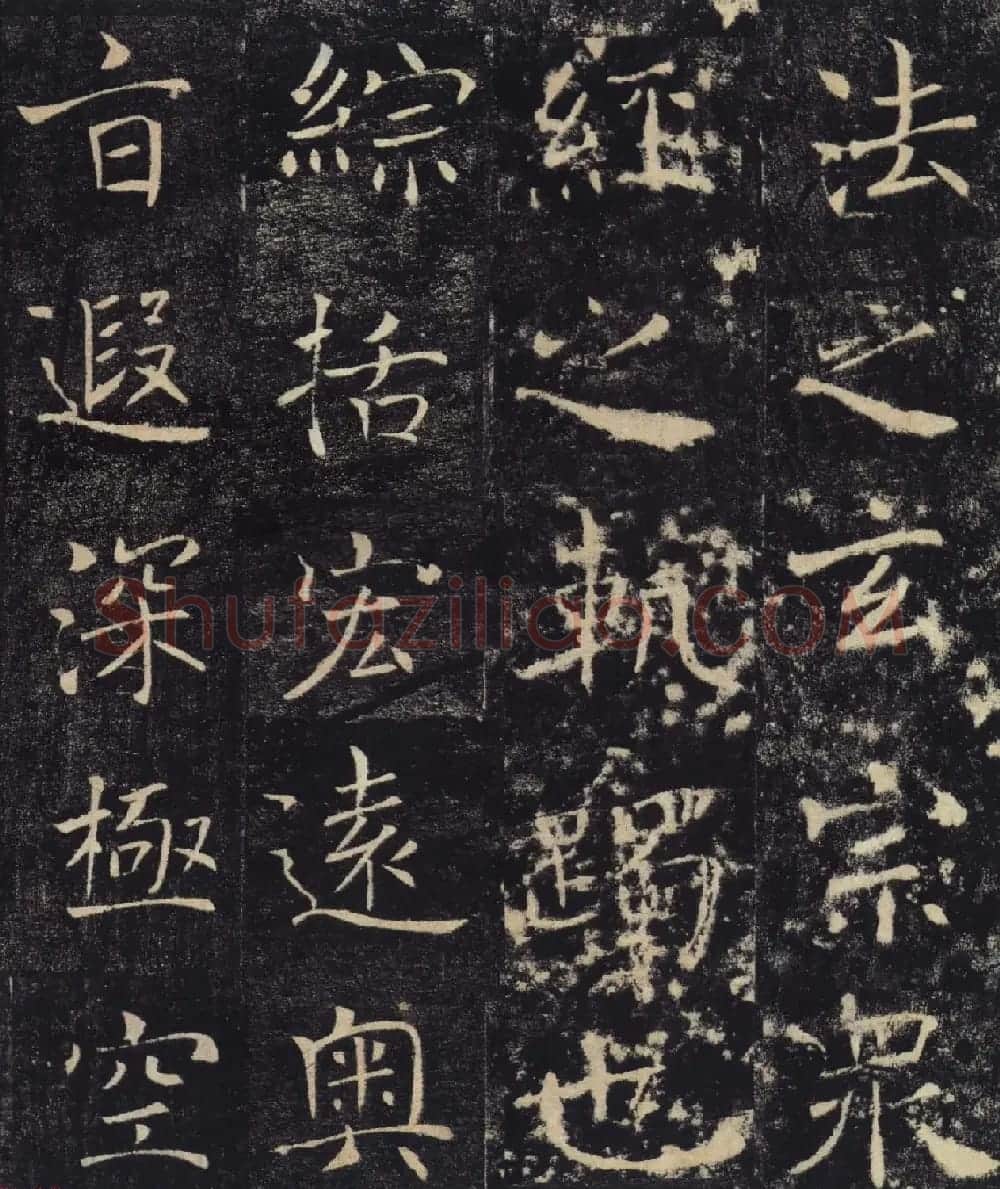 法之玄宗眾
經之軌躅也
綜括宏遠奧
旨遐深極空
Shufaziliao.COM